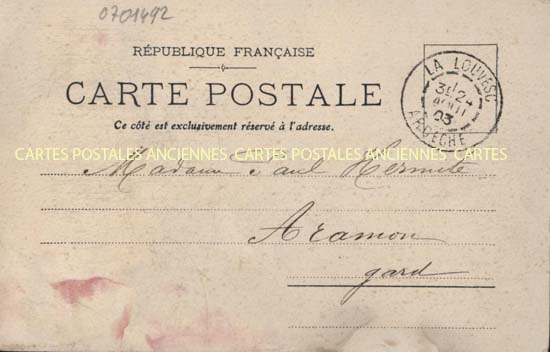 0701492
RÉPUBLIQUE FRANÇAISE
CARTE POSTALE
Ce côté est exclusivement réservé à l'adresse.
LA LOUVESC
AOUT
03
ARDÈCHE
CARTES POSTALES ANCIENNES CARTES POSTALES ANCIENNES CARTES
Madame Paul Hermite
Aramon
gard